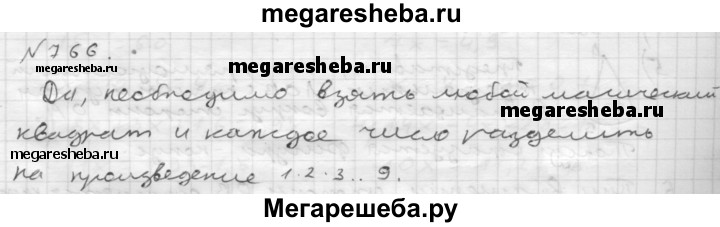 megaresheba.ru
№ 766.
megaresheba.ru
megaresheba.ru
Да, необходимо взять любой магический
megaresheba.ru
квадрат и каждое число разделить
megaresheba.ru
на произведение 1·2·3..9.
Мегарешеба.ру